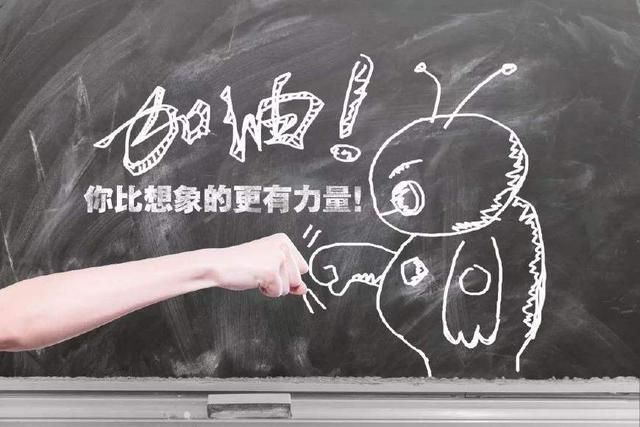 加油！
你比想象的更有力量！